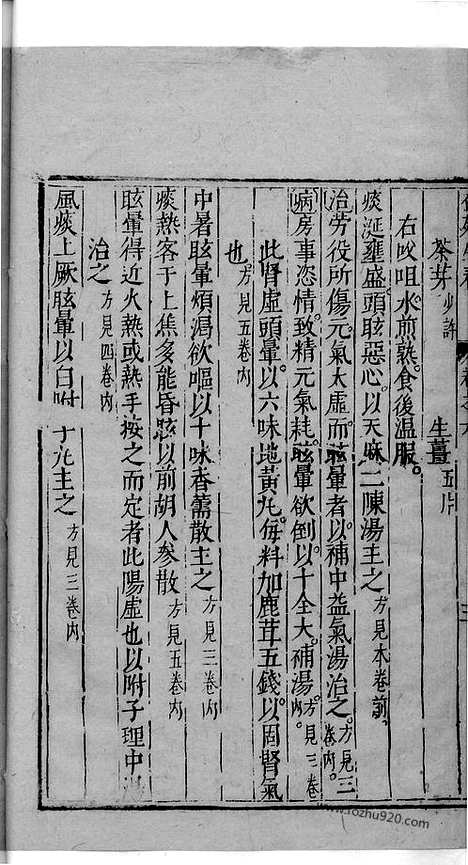 茶芽少許　生薑五片
右㕮咀水煎熟食後溫服。
痰涎壅盛頭眩惡心。以天麻二陳湯主之方見本卷前。
治労役所傷。元氣太虛。而眩暈者。以補中益氣湯治之。方見三卷内。
病房事恣情。致精元氣耗。眩暈欲倒。以十全大補湯。方見三卷内。
此腎虛頭暈。以六味地黃丸。每料加鹿茸五錢。以固腎氣
也方見五卷内
中暑眩暈煩渴欲嘔以十味香薷散主之方見三卷内
痰熱客于上焦多能昏眩以前胡人參散方見五卷内
眩暈得近火熱或熱手按之而定者此陽虛也以附子理中
治之方見四卷内
風痰上厥眩暈以白附 十丸主之方見三卷内
www.fozhu920.com